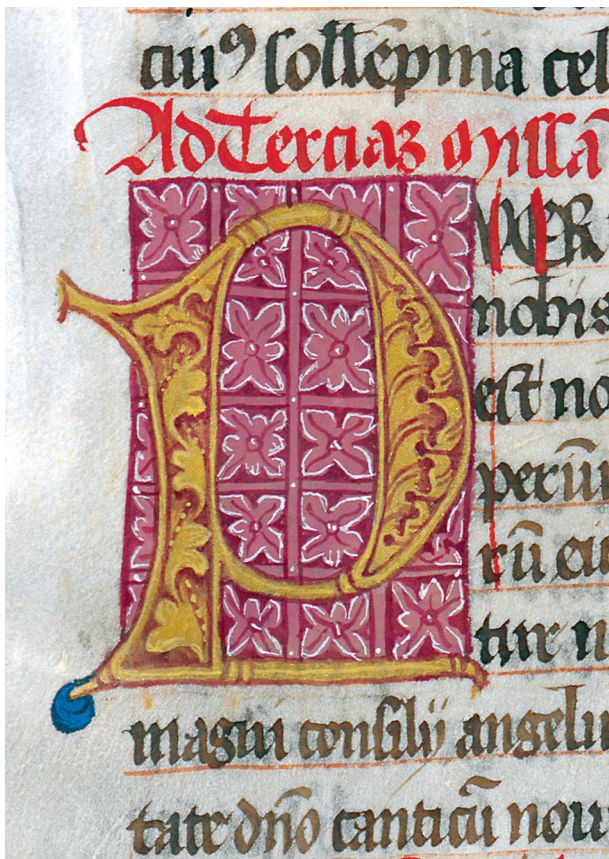 ciuꝰ sollēpnia cel
Ad Terciaȝ missā
PUER
nobis
est no
periū
rū eiu
tur n
magni consilij angelu
tate dn̄o canticū nou